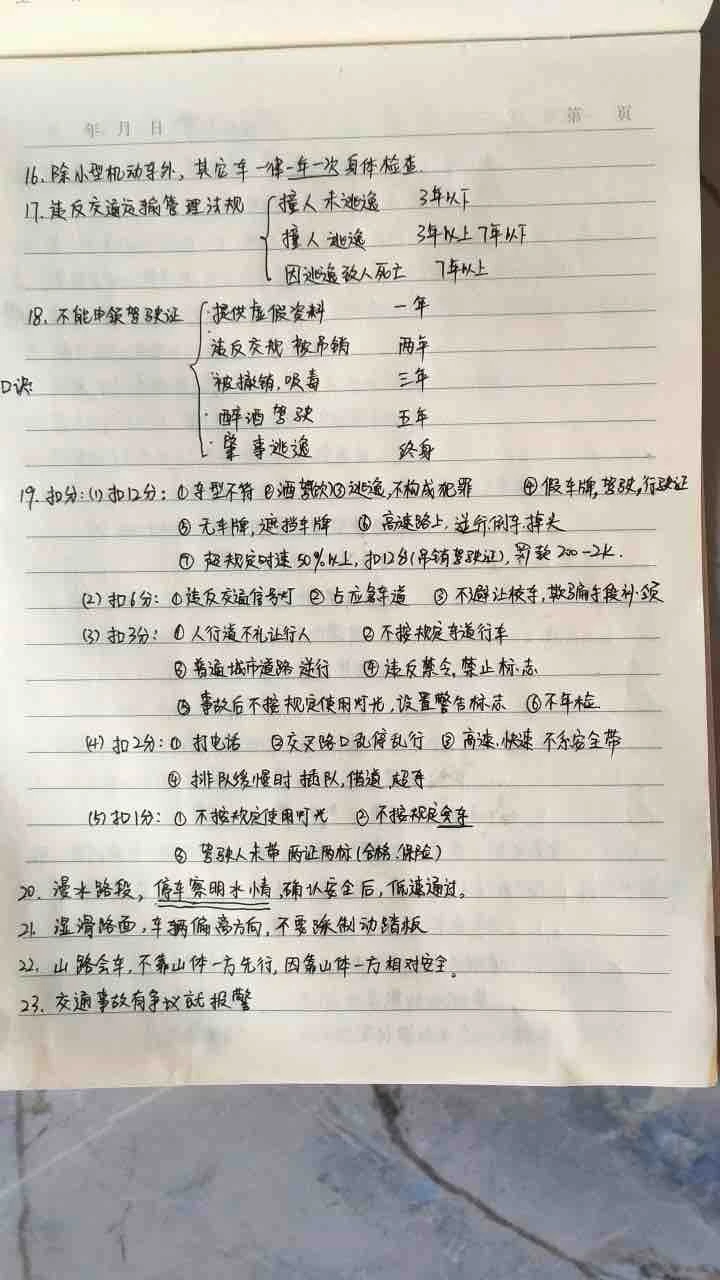 年 月 日 第 页
16. 除小型机动车外，其它车一律一年一次身体检查.
17. 违反交通运输管理法规 撞人未逃逸 3年以下
撞人逃逸 3年以上7年以下
因逃逸致人死亡 7年以上
18. 不能申领驾驶证 提供虚假资料 一年
违反交规 被吊销 两年
口诀:
被撤销, 吸毒 三年
醉酒驾驶 五年
肇事逃逸 终身
19. 扣分: (1) 扣12分: ① 车型不符 ②酒驾(饮) ③ 逃逸, 不构成犯罪 ④ 假车牌, 驾驶, 行驶证
⑤ 无车牌, 遮挡车牌 ⑥ 高速路上, 逆行, 倒车, 掉头
⑦ 超规定时速50%以上, 扣12分(吊销驾驶证), 罚款200-2k.
(2) 扣6分: ① 违反交通信号灯 ② 占应急车道 ③ 不避让校车, 欺骗手段补领
(3) 扣3分: ① 人行道不礼让行人 ② 不按规定车道行车
③ 普通城市道路逆行 ④ 违反禁令, 禁止标志
⑤ 事故后不按规定使用灯光, 设置警告标志 ⑥ 不年检
(4) 扣2分: ① 打电话 ② 交叉路口乱停乱行 ③ 高速, 快速 不系安全带
④ 排队缓慢时 插队, 借道, 超车
(5) 扣1分: ① 不按规定使用灯光 ② 不按规定会车
③ 驾驶人未带 两证两标(合格、保险)
20. 漫水路段, 停车察明水情, 确认安全后, 低速通过。
21. 湿滑路面, 车辆偏离方向, 不要踩制动踏板
22. 山路会车, 不靠山体一方先行, 因靠山体一方相对安全。
23. 交通事故有争议就报警